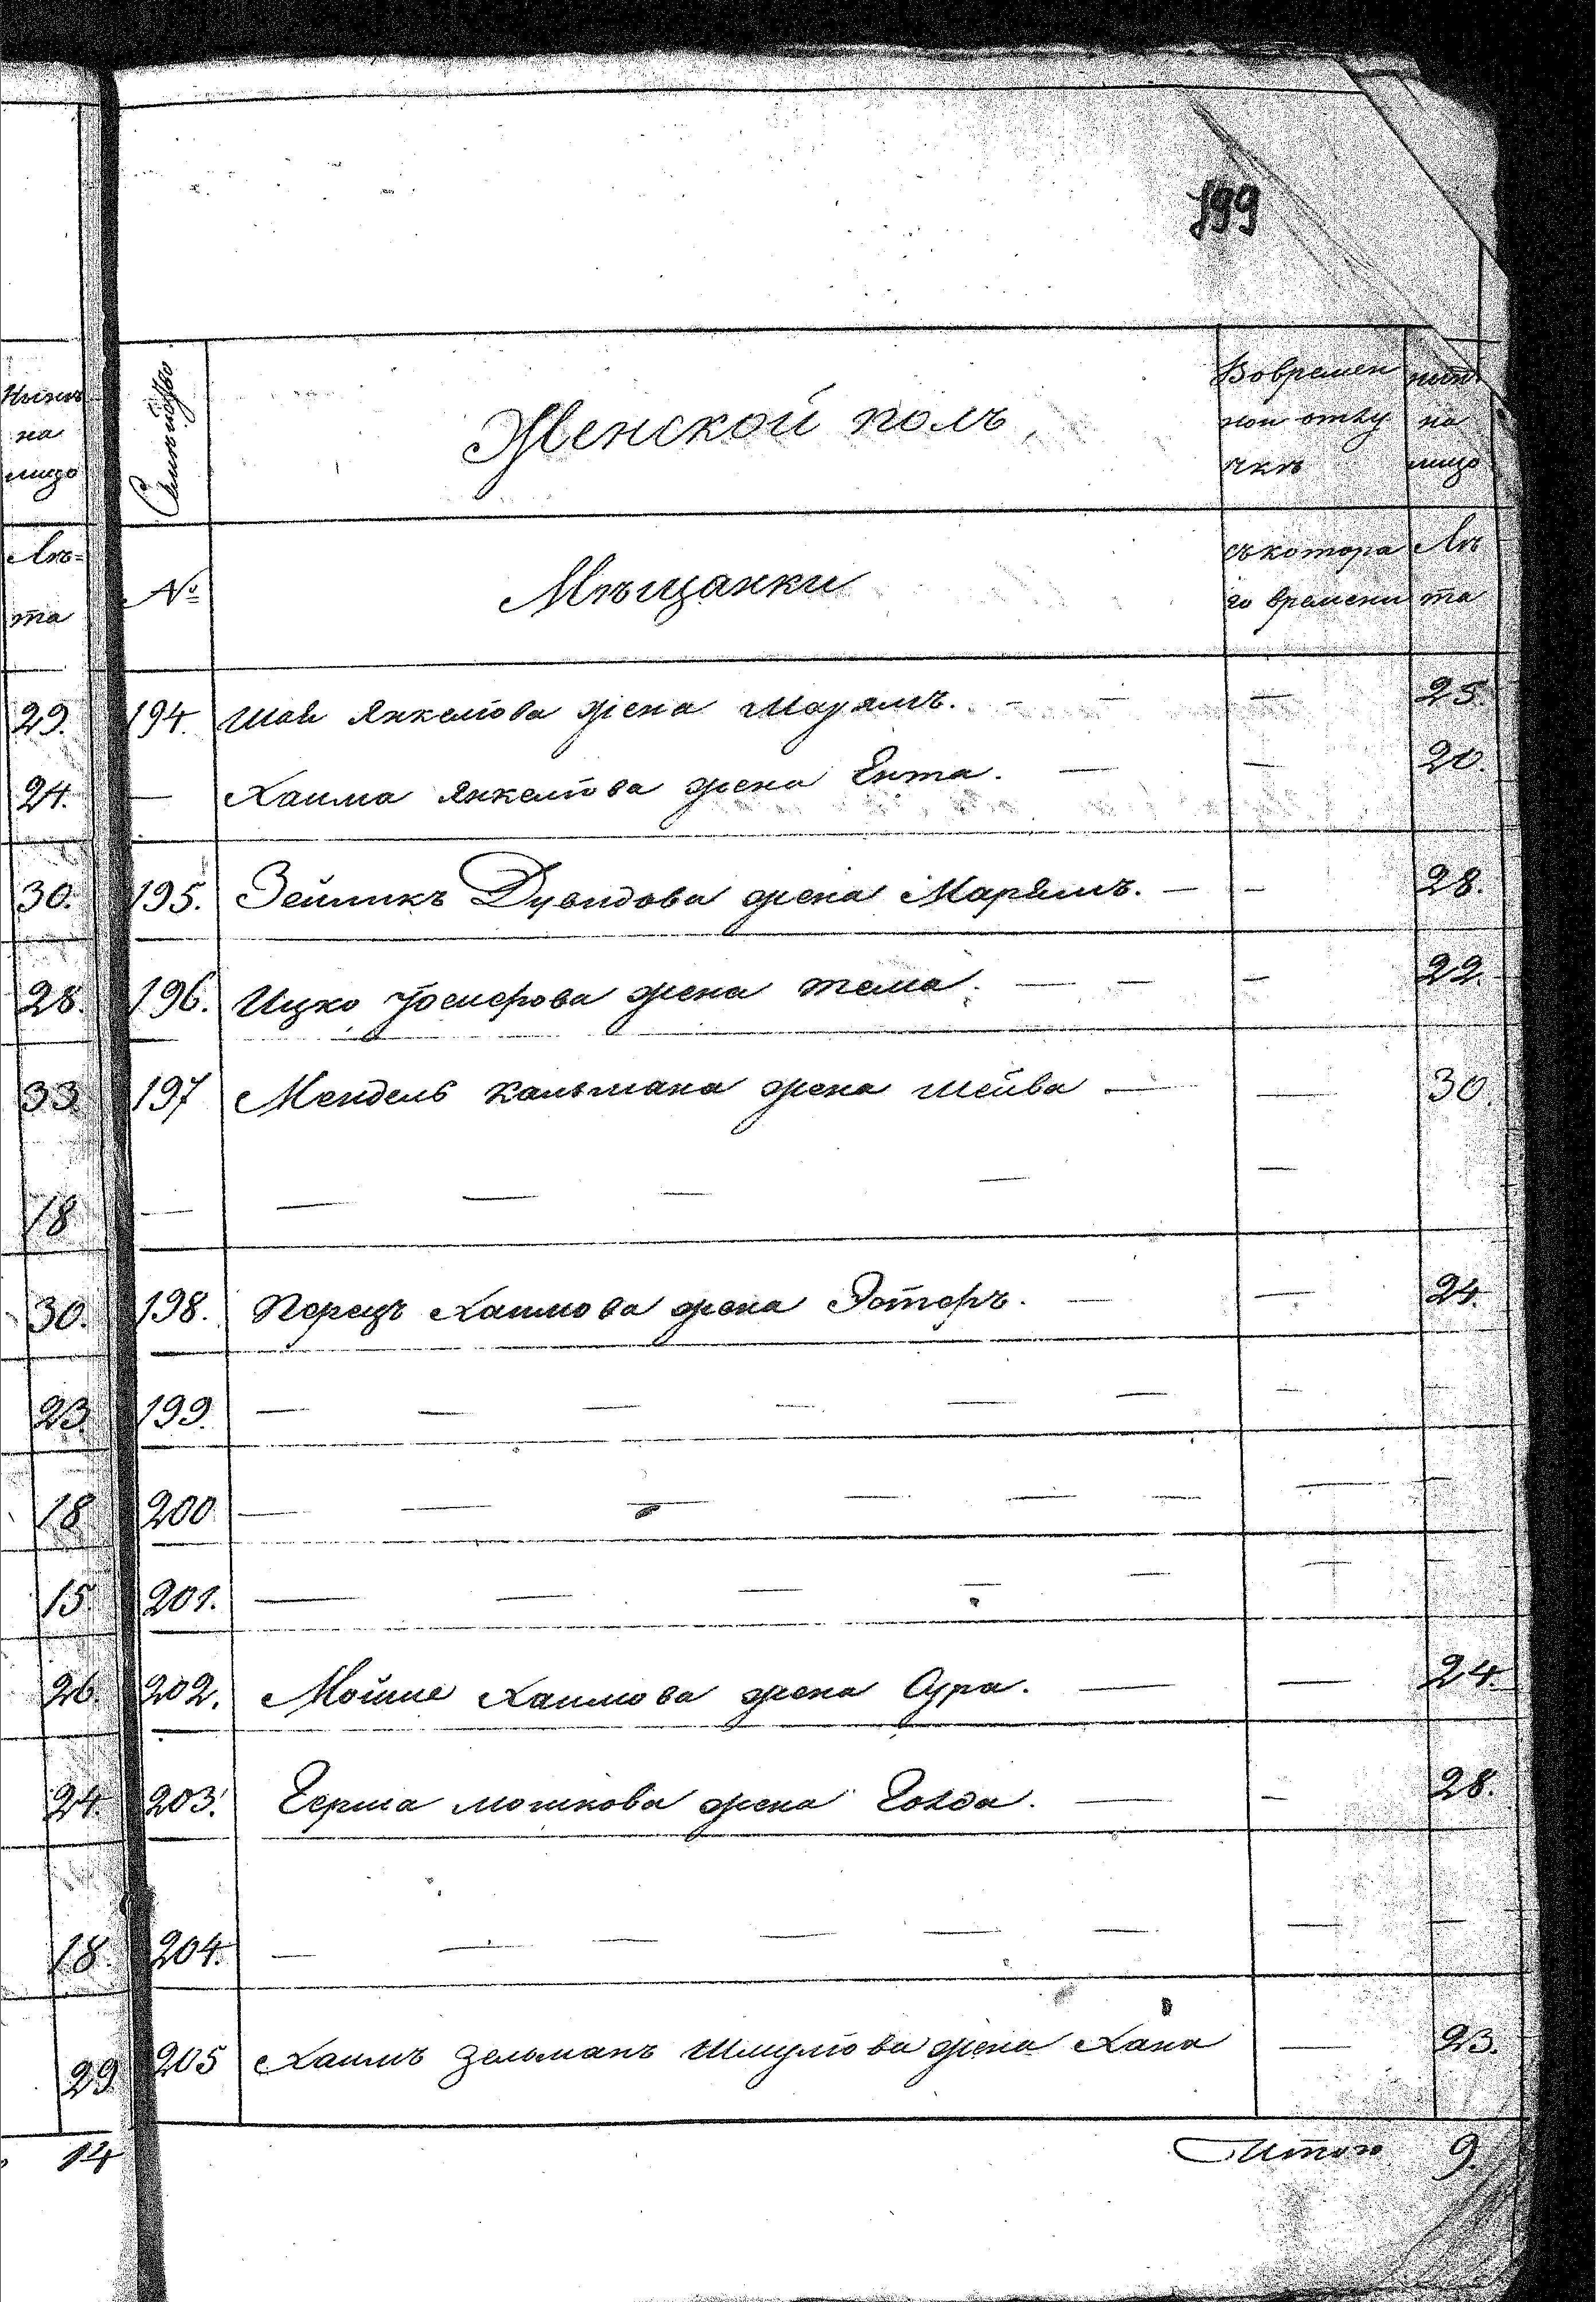 199
Нынѣ
на
лицо
Лѣ=
та
29.
24.
30.
28.
33
18
30.
23
18
15.
26.
24.
18.
29
14
Семейство
Женской полъ
Вовремен
ной отлу
чкѣ
нынѣ
на
лицо
№
Мѣщанки
съ котора
го времени
Лѣ
та
194. Шаи Янкелова жена Марямъ. — — 25.
— Хаима Янкелова жена Ента. — — 20.
195. Зейликъ Дувидова жена Марямъ. — — 28.
196. Ицко Іосиефова жена тема. — — — 22.
197 Мендель Кальмана жена Шейва — — 30.
— — — — — —
198. Перецъ Хаимова жена Эстеръ. — — 24.
199. — — — — — — — —
200 — — — — — — — —
201. — — — — — — —
202. Мойше Хаимова жена Сура. — — 24.
203. Герша мошкова жена Голда. — — 28.
204. — — — — — — — —
205 Хаимъ Зельманъ Шмулова жена Хана — 23.
Итого 9.